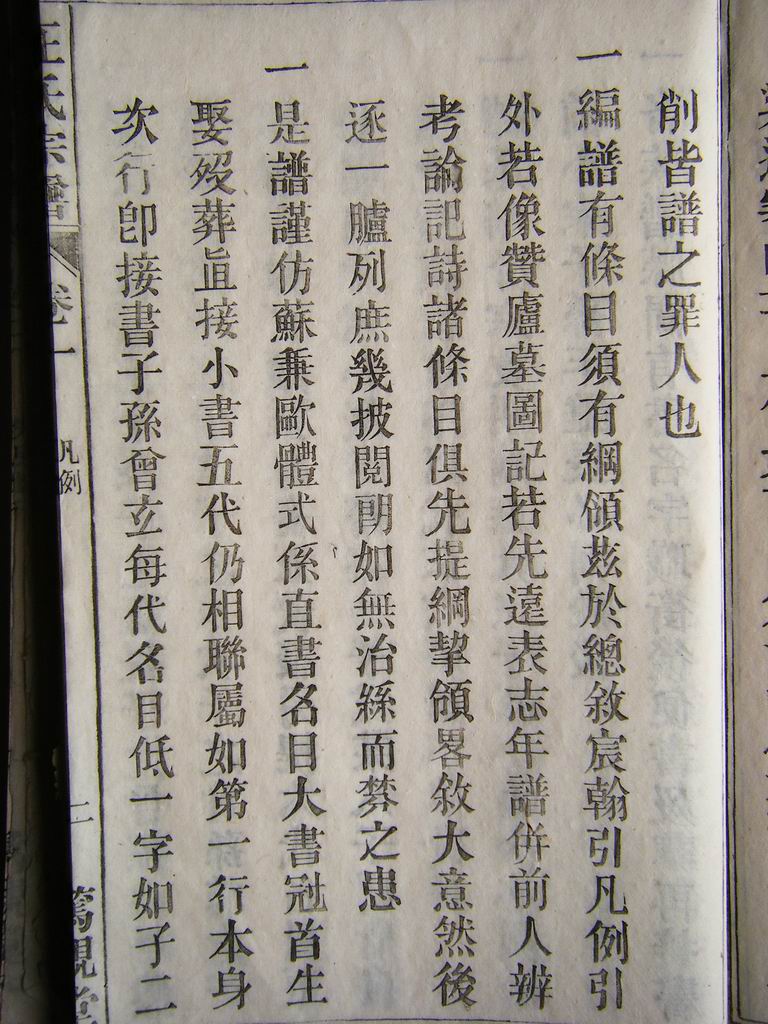 削皆譜之罪人也
一編譜有條目須有綱領茲於總敘宸翰引凡例引
外若像贊廬墓圖記若先遠表志年譜併前人辨
考論記詩諸條目俱先提綱挈領畧敘大意然後
逐一臚列庶幾披閱朗如無治絲而棼之患
一是譜謹仿蘇兼歐體式係直書名目大書冠首生
娶歿葬直接小書五代仍相聯屬如第一行本身
次行卽接書子孫曾玄每代名目低一字如子二
氏宗譜 卷一 凡例 二